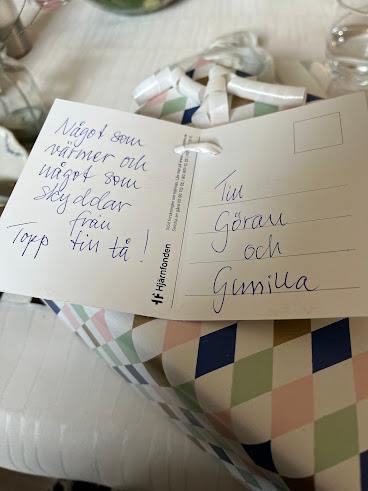 Något som
värmer och
något som
skyddar
från
Topp till tå!
Hjärnfonden
Till
Göran
och
Gunilla